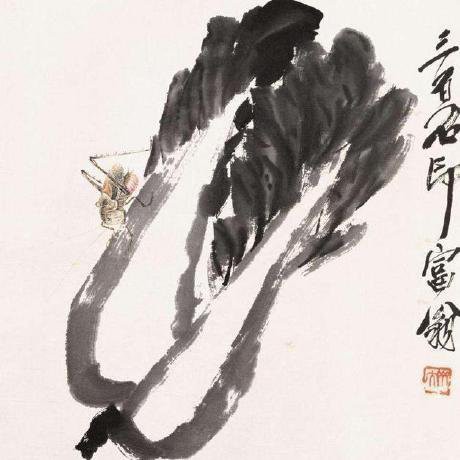 三百石印富翁